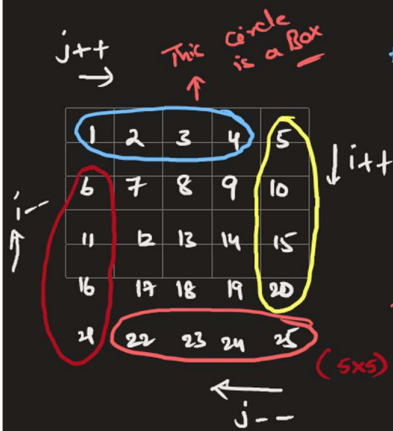 j++
This circle
is a Box
1 2 3 4 5
i++
6 7 8 9 10
i--
11 12 13 14 15
16 17 18 19 20
21 22 23 24 25
(5x5)
j--